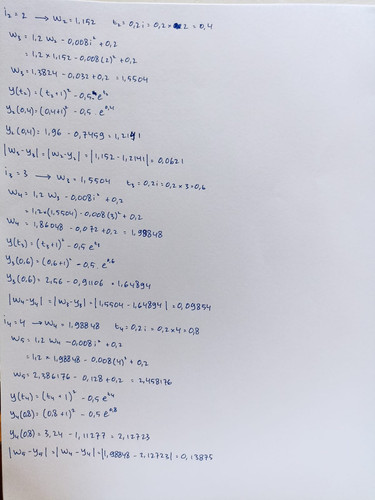 i₂ = 2 → w₂ = 1,152 t₂ = 0,2i = 0,2 × 2 = 0,4
w₃ = 1,2 w₂ - 0,008i² + 0,2
= 1,2 × 1,152 - 0,008(2)² + 0,2
w₃ = 1,3824 - 0,032 + 0,2 = 1,5504
y(t₂) = (t₂+1)² - 0,5 e^t₂
y₂(0,4) = (0,4+1)² - 0,5 . e^0,4
y₂(0,4) = 1,96 - 0,7459 = 1,2141
|w₂-y₂| = |w₂-y₂| = |1,152 - 1,2141| = 0,0621
i₃ = 3 → w₃ = 1,5504 t₃ = 0,2i = 0,2 × 3 = 0,6
w₄ = 1,2 w₃ - 0,008i² + 0,2
= 1,2×(1,5504) - 0,008(3)² + 0,2
w₄ = 1,86048 - 0,072 + 0,2 = 1,98848
y(t₃) = (t₃+1)² - 0,5 e^t₃
y₃(0,6) = (0,6+1)² - 0,5 . e^0,6
y₃(0,6) = 2,56 - 0,91106 = 1,64894
|w₄-y₄| = |w₃-y₃| = |1,5504 - 1,64894| = 0,09854
i₄ = 4 → w₄ = 1,98848 t₄ = 0,2i = 0,2 × 4 = 0,8
w₅ = 1,2 w₄ - 0,008i² + 0,2
= 1,2 × 1,98848 - 0,008(4)² + 0,2
w₅ = 2,386176 - 0,128 + 0,2 = 2,458176
y(t₄) = (t₄+1)² - 0,5 e^t₄
y₄(0,8) = (0,8+1)² - 0,5 e^0,8
y₄(0,8) = 3,24 - 1,11277 = 2,12723
|w₄-y₄| = |w₄-y₄| = |1,98848 - 2,12723| = 0,13875